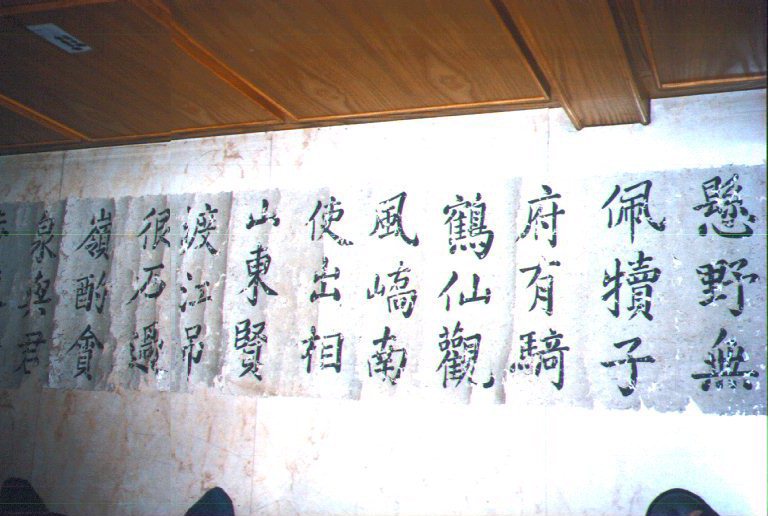 懸野無
佩犢子
府有騎
鶴仙觀
風嶠南
使出相
山東賢
渡江吊
很石過
嶺酌貪
泉與君